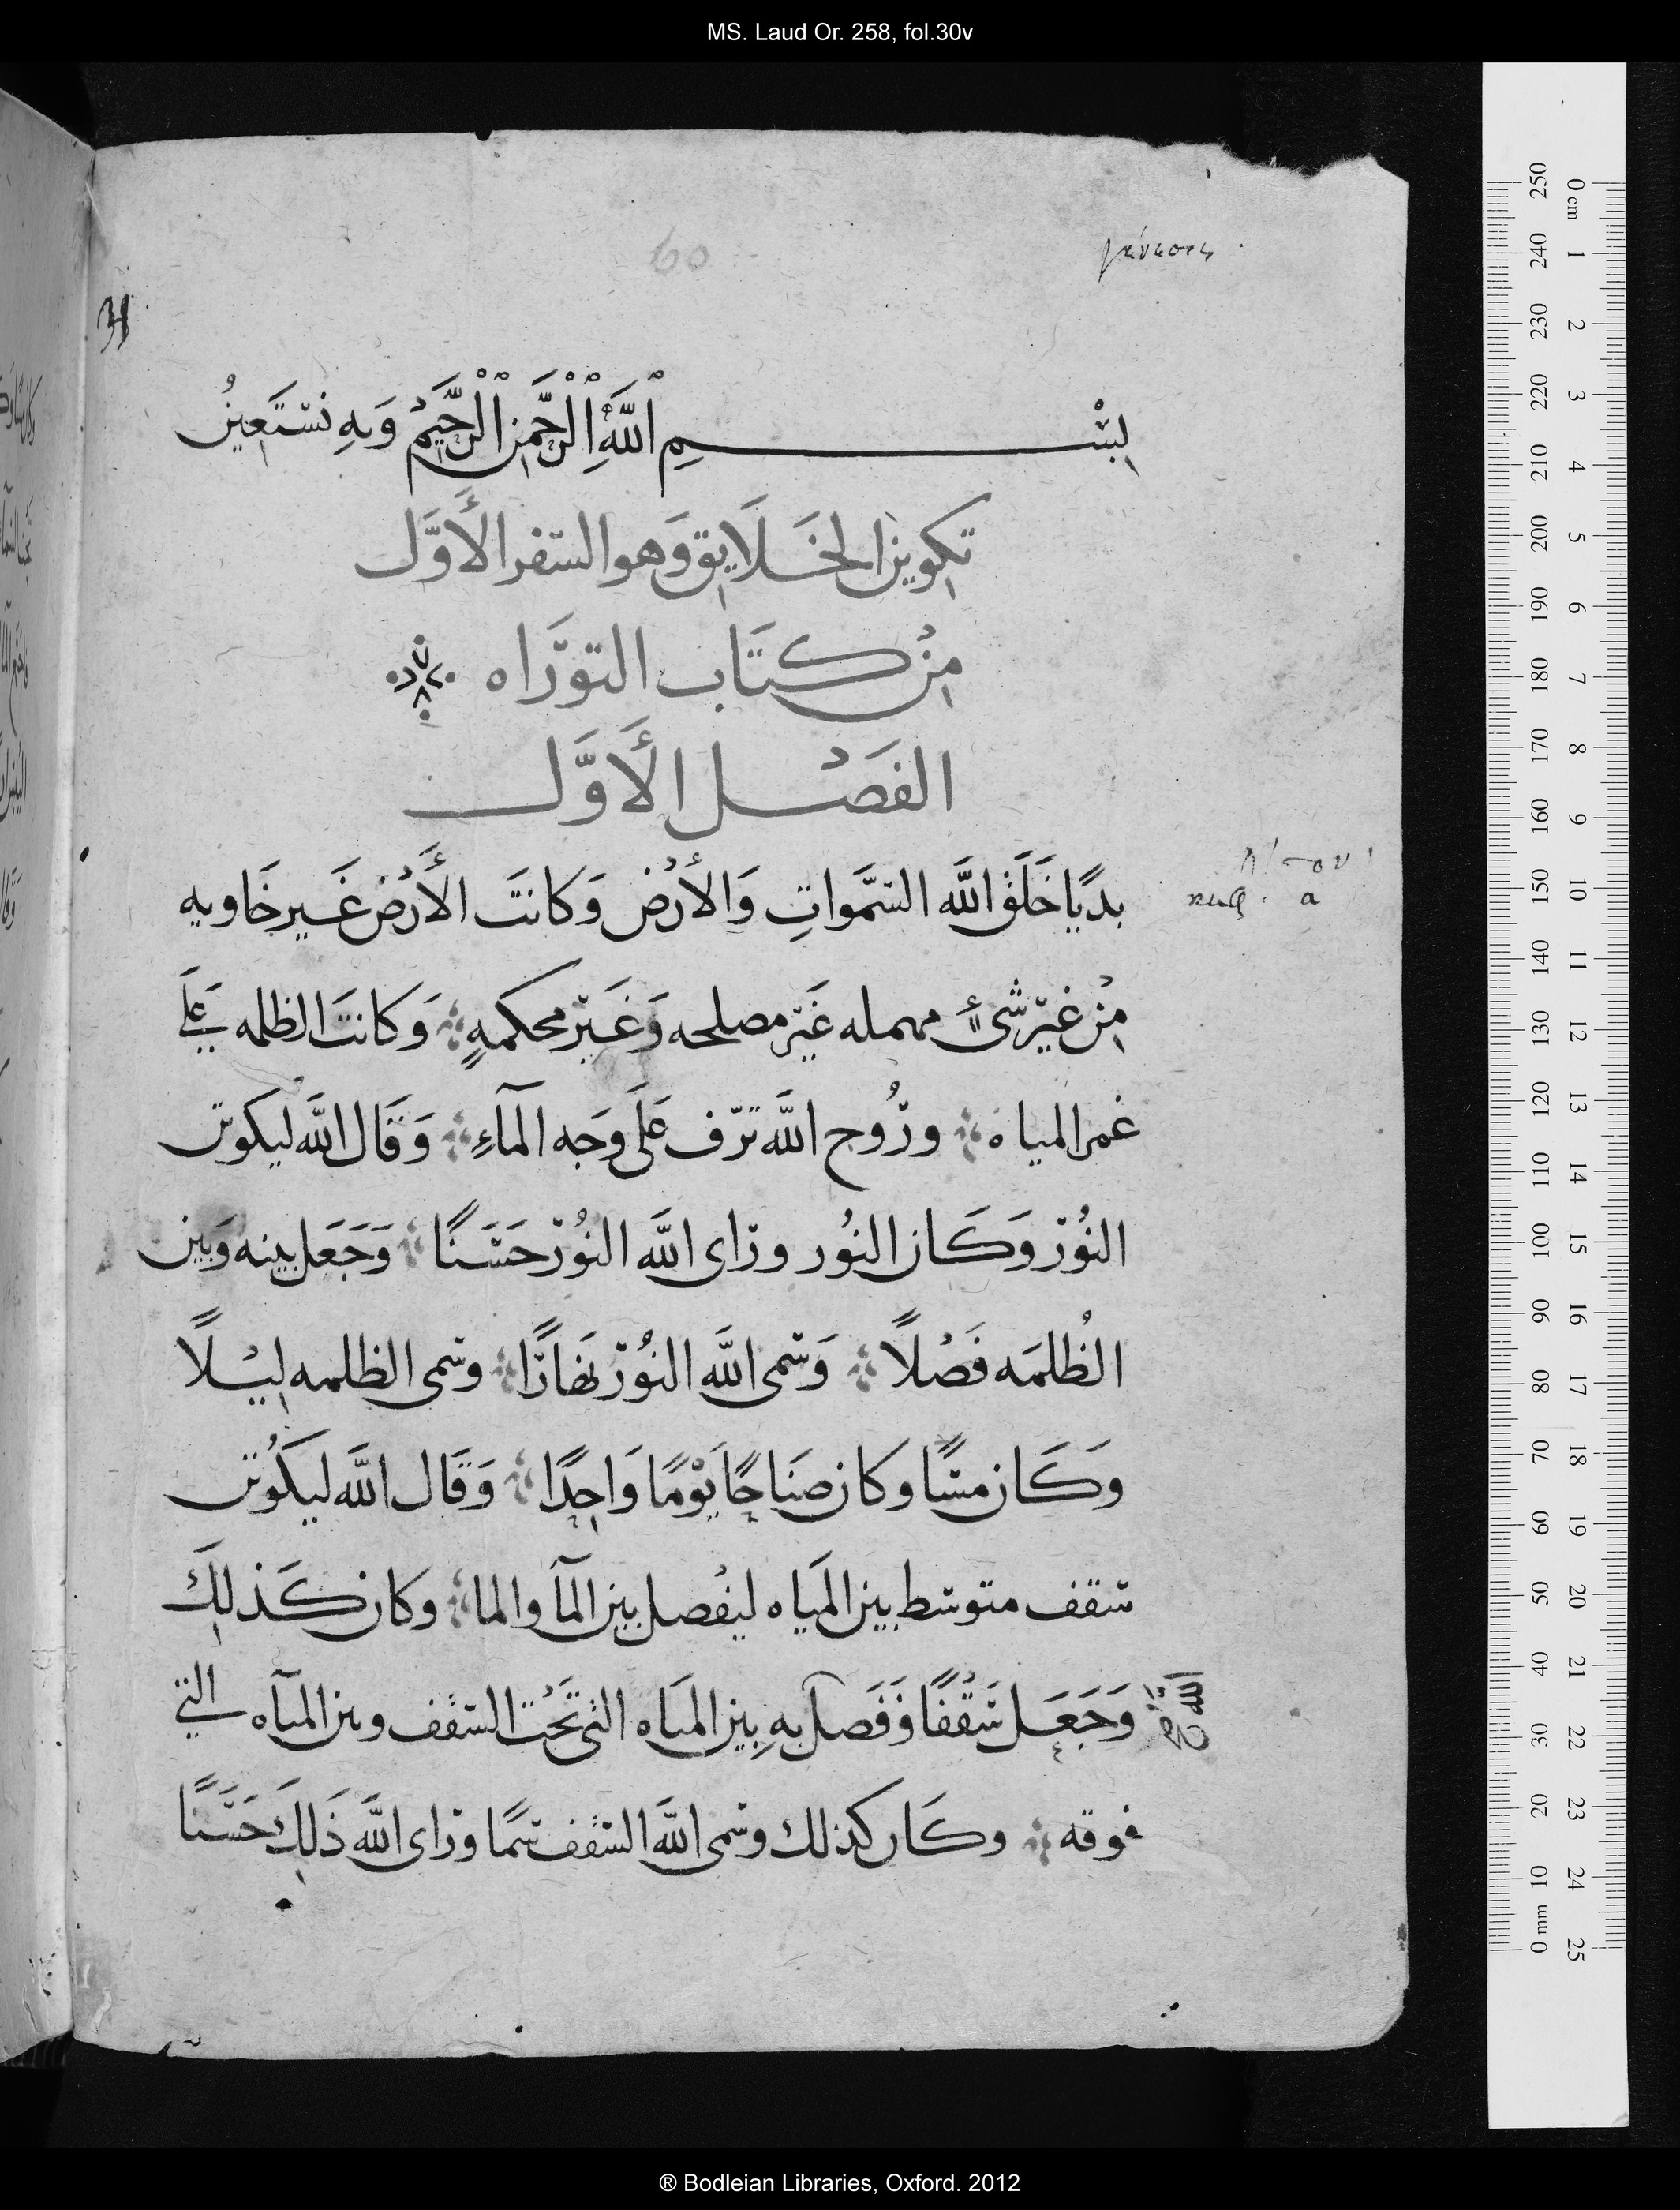 MS. Laud Or. 258, fol.30v
γένεσις
60
31
بِسْمِ اللَّهِ الرَّحْمَنِ الرَّحِيمِ وَبِهِ نَسْتَعِينُ
تكوين الخَلَايق وَهو السفر الأَوَّل
مِنْ كتَاب التورَاه
الفَصْل الأَوَّل
بديًا خَلَقَ اللَّه السَّمَواتِ وَالأَرْض وَكانَتَ الأَرْض غَير خَاويه
κεφ. α
مِنْ غيَر شىٍٔ مهمله غَيَر مصلحه وَغَيَر محكمهٍ وَكانَتَ الظلمه عَلَي
غمر المياه ورُوح اللَّه ترَف عَلَى وَجه المآءِ وَقَال اللَّه ليكون
النُور وَكَان النُور وراى اللَّه النُور حَسَنًا وَجَعَل بينه وَبين
الظُلمَه فَصْلاً وَسمى اللَّه النُور نهَارًا وسمى الظلمه ليْلاً
وَكَان مسًا وكان صَباحًا يَوْمًا وَاحِدًا وَقَال اللَّه ليَكُون
سقف متوسط بين المَياه ليفْصل بين المآ والما وكان كَذلِكَ
وَجَعَل سَقْفًا وَفَصَل بِهِ بين المَياه التى تَحْت السقف وبين الميآه التي
اللّه
فوقه وكَان كذلك وسمى اللَّه السقف سمًا وراى اللَّه ذَلِكَ حَسَنًا
0 cm 1 2 3 4 5 6 7 8 9 10 11 12 13 14 15 16 17 18 19 20 21 22 23 24 25
250 240 230 220 210 200 190 180 170 160 150 140 130 120 110 100 90 80 70 60 50 40 30 20 10 0 mm
® Bodleian Libraries, Oxford. 2012